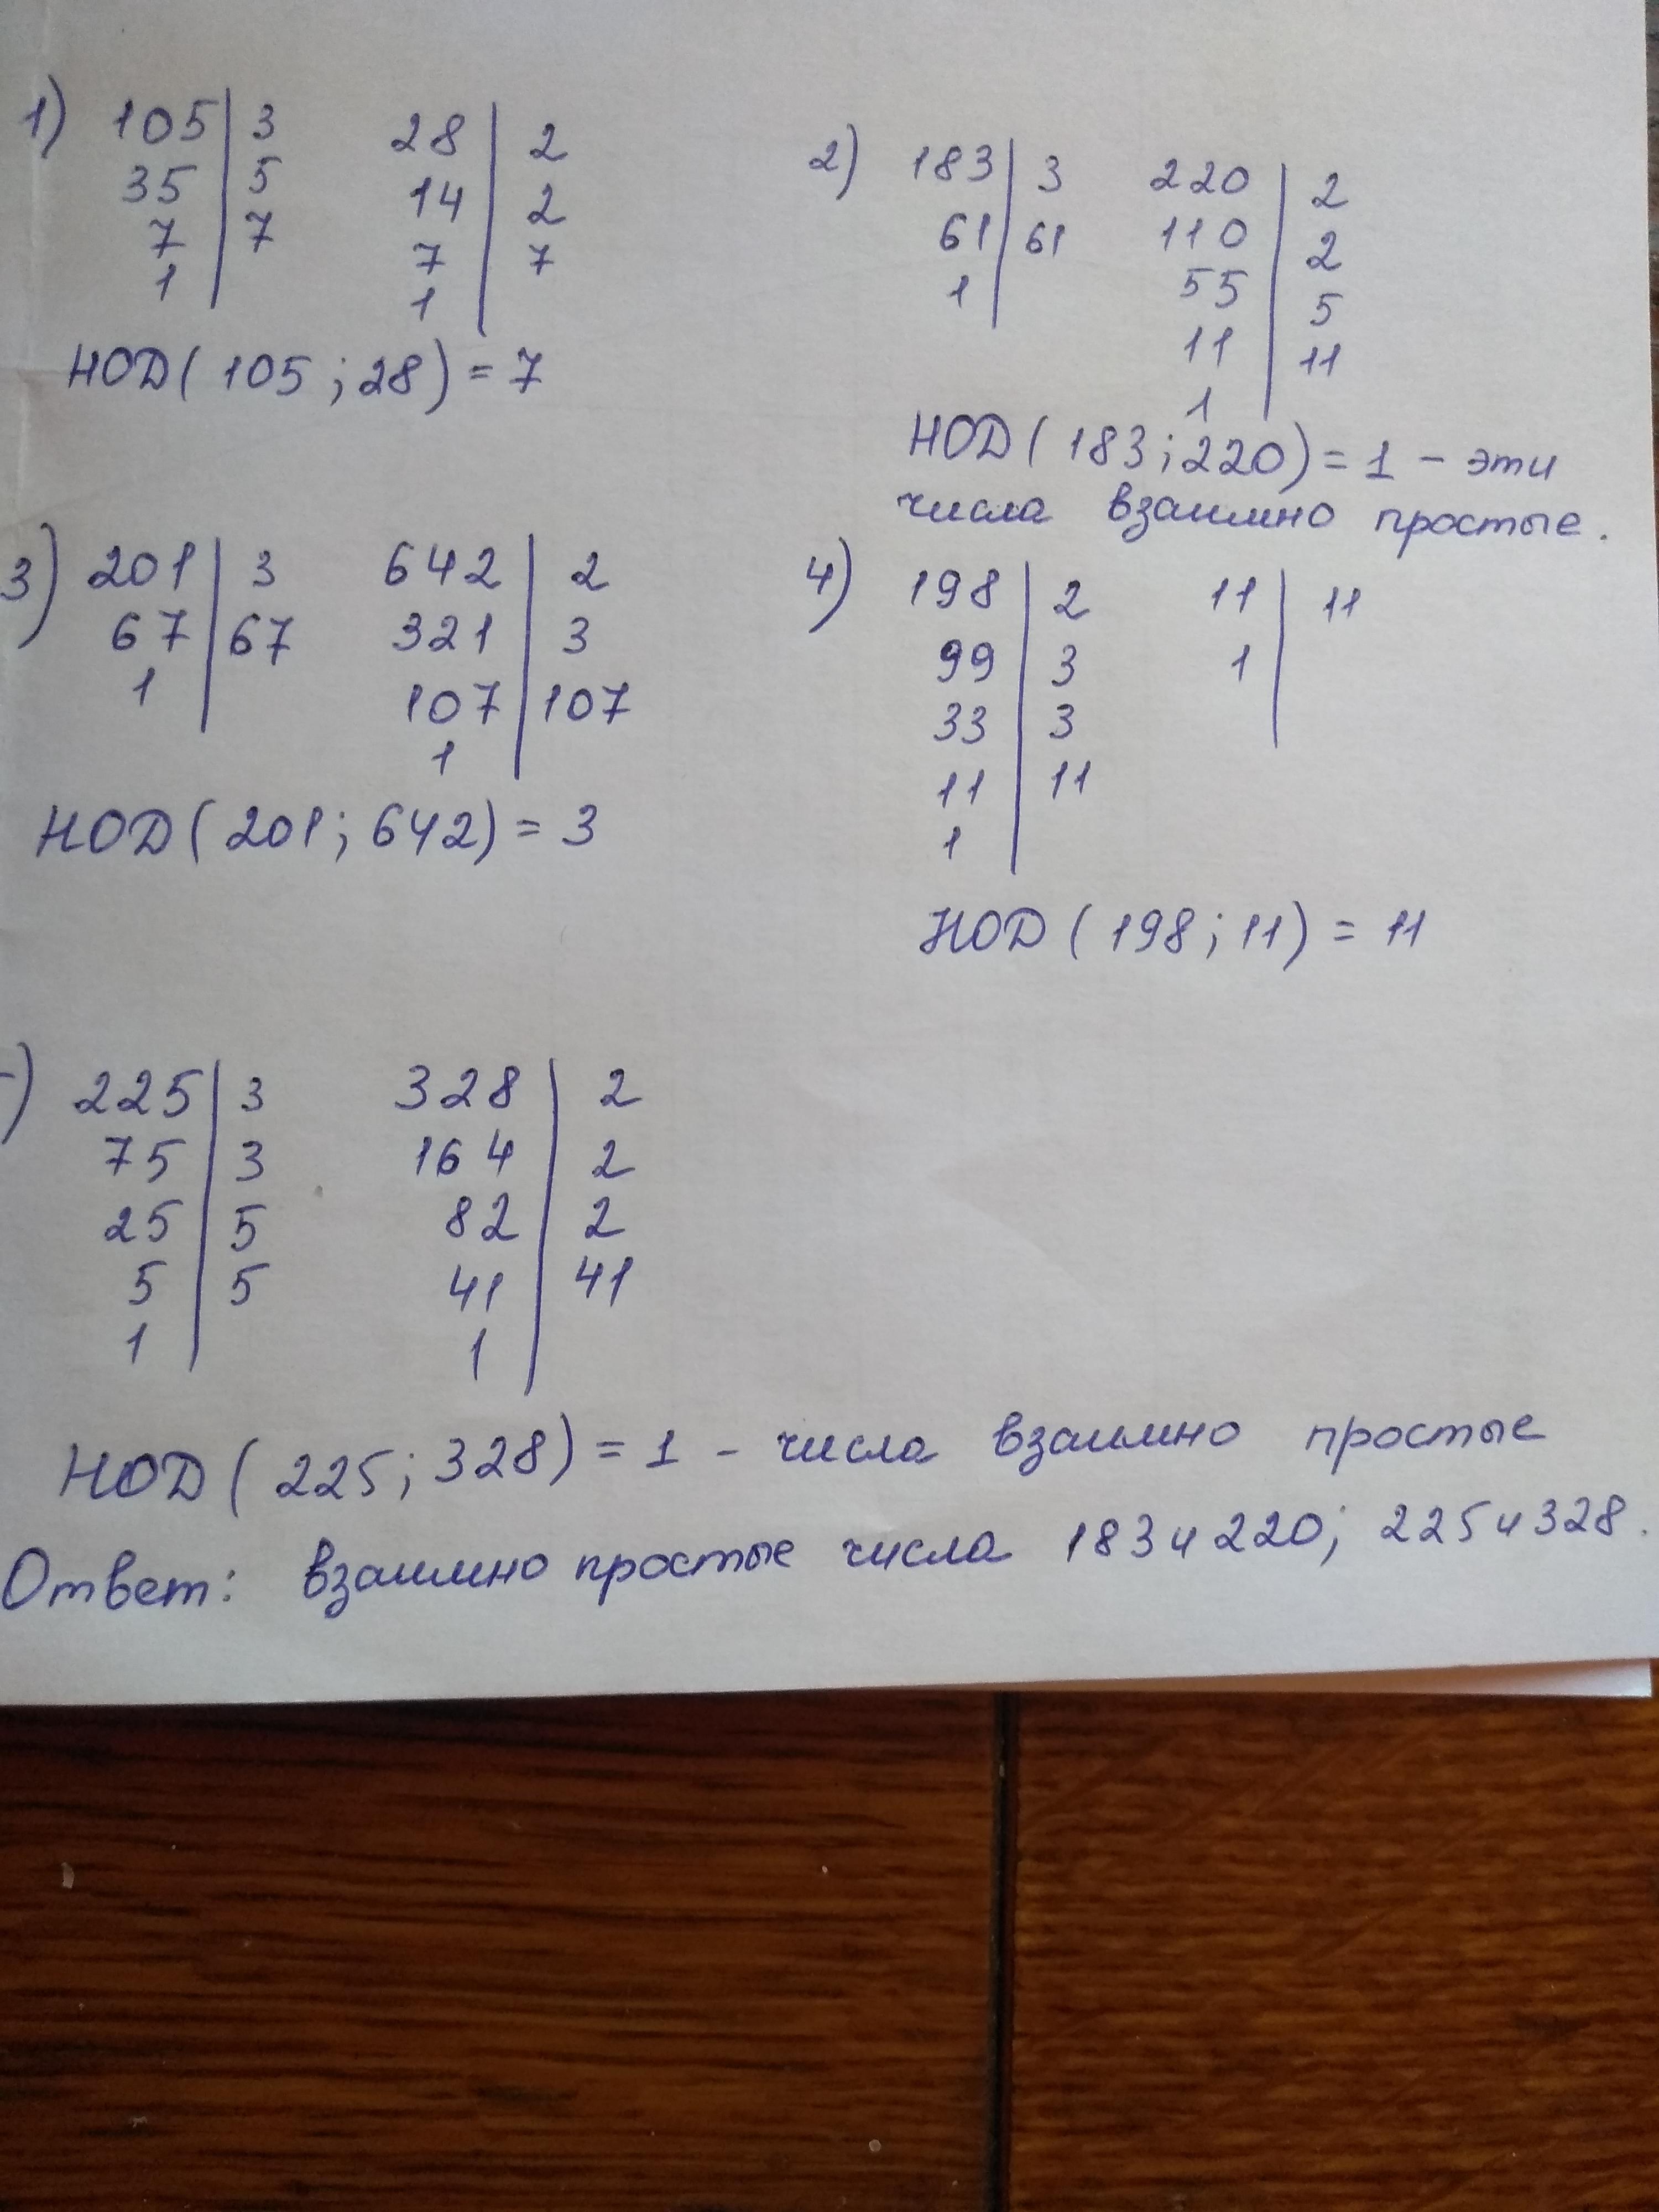 1) 105 | 3    28 | 2
35 | 5    14 | 2
7 | 7    7 | 7
1 |    1 |
НОД( 105 ; 28) = 7
2) 183 | 3    220 | 2
61 | 61    110 | 2
1 |    55 | 5
11 | 11
1 |
НОД( 183 ; 220) = 1 – эти
числа взаимно простые.
3) 201 | 3    642 | 2
67 | 67    321 | 3
1 |    107 | 107
1 |
НОД( 201; 642) = 3
4) 198 | 2    11 | 11
99 | 3    1 |
33 | 3
11 | 11
1 |
НОД ( 198 ; 11) = 11
) 225 | 3    328 | 2
75 | 3    164 | 2
25 | 5    82 | 2
5 | 5    41 | 41
1 |    1 |
НОД ( 225; 328) = 1 – числа взаимно простые
Ответ: взаимно простые числа 183 и 220; 225 и 328.